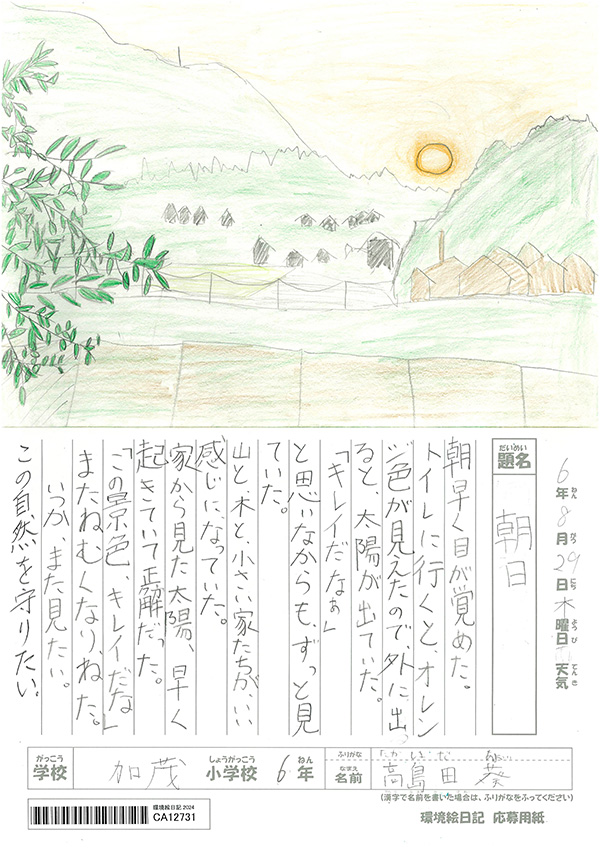 6年8月29日木曜日 天気
ねん がつ にち ようび てんき
だいめい
題名
朝日
朝早く目が覚めた。
トイレに行くと、オレン
ジ色が見えたので、外に出
ると、太陽が出ていた。
「キレイだなぁ」
と思いながらも、ずっと見
ていた。
山と、木と、小さい家たちがいい
感じになっていた。
家から見た太陽、早く
起きていて正解だった。
「この景色、キレイだな」
またねむくなり、ねた。
いつか、また見たい。
この自然を守りたい。
がっこう しょうがっこう ねん
学校 加茂 小学校 6年
ふりがな
なまえ
名前 高島田 葵
(漢字で名前を書いた場合は、ふりがなをふってください)
環境絵日記 2024
CA12731
環境絵日記 応募用紙